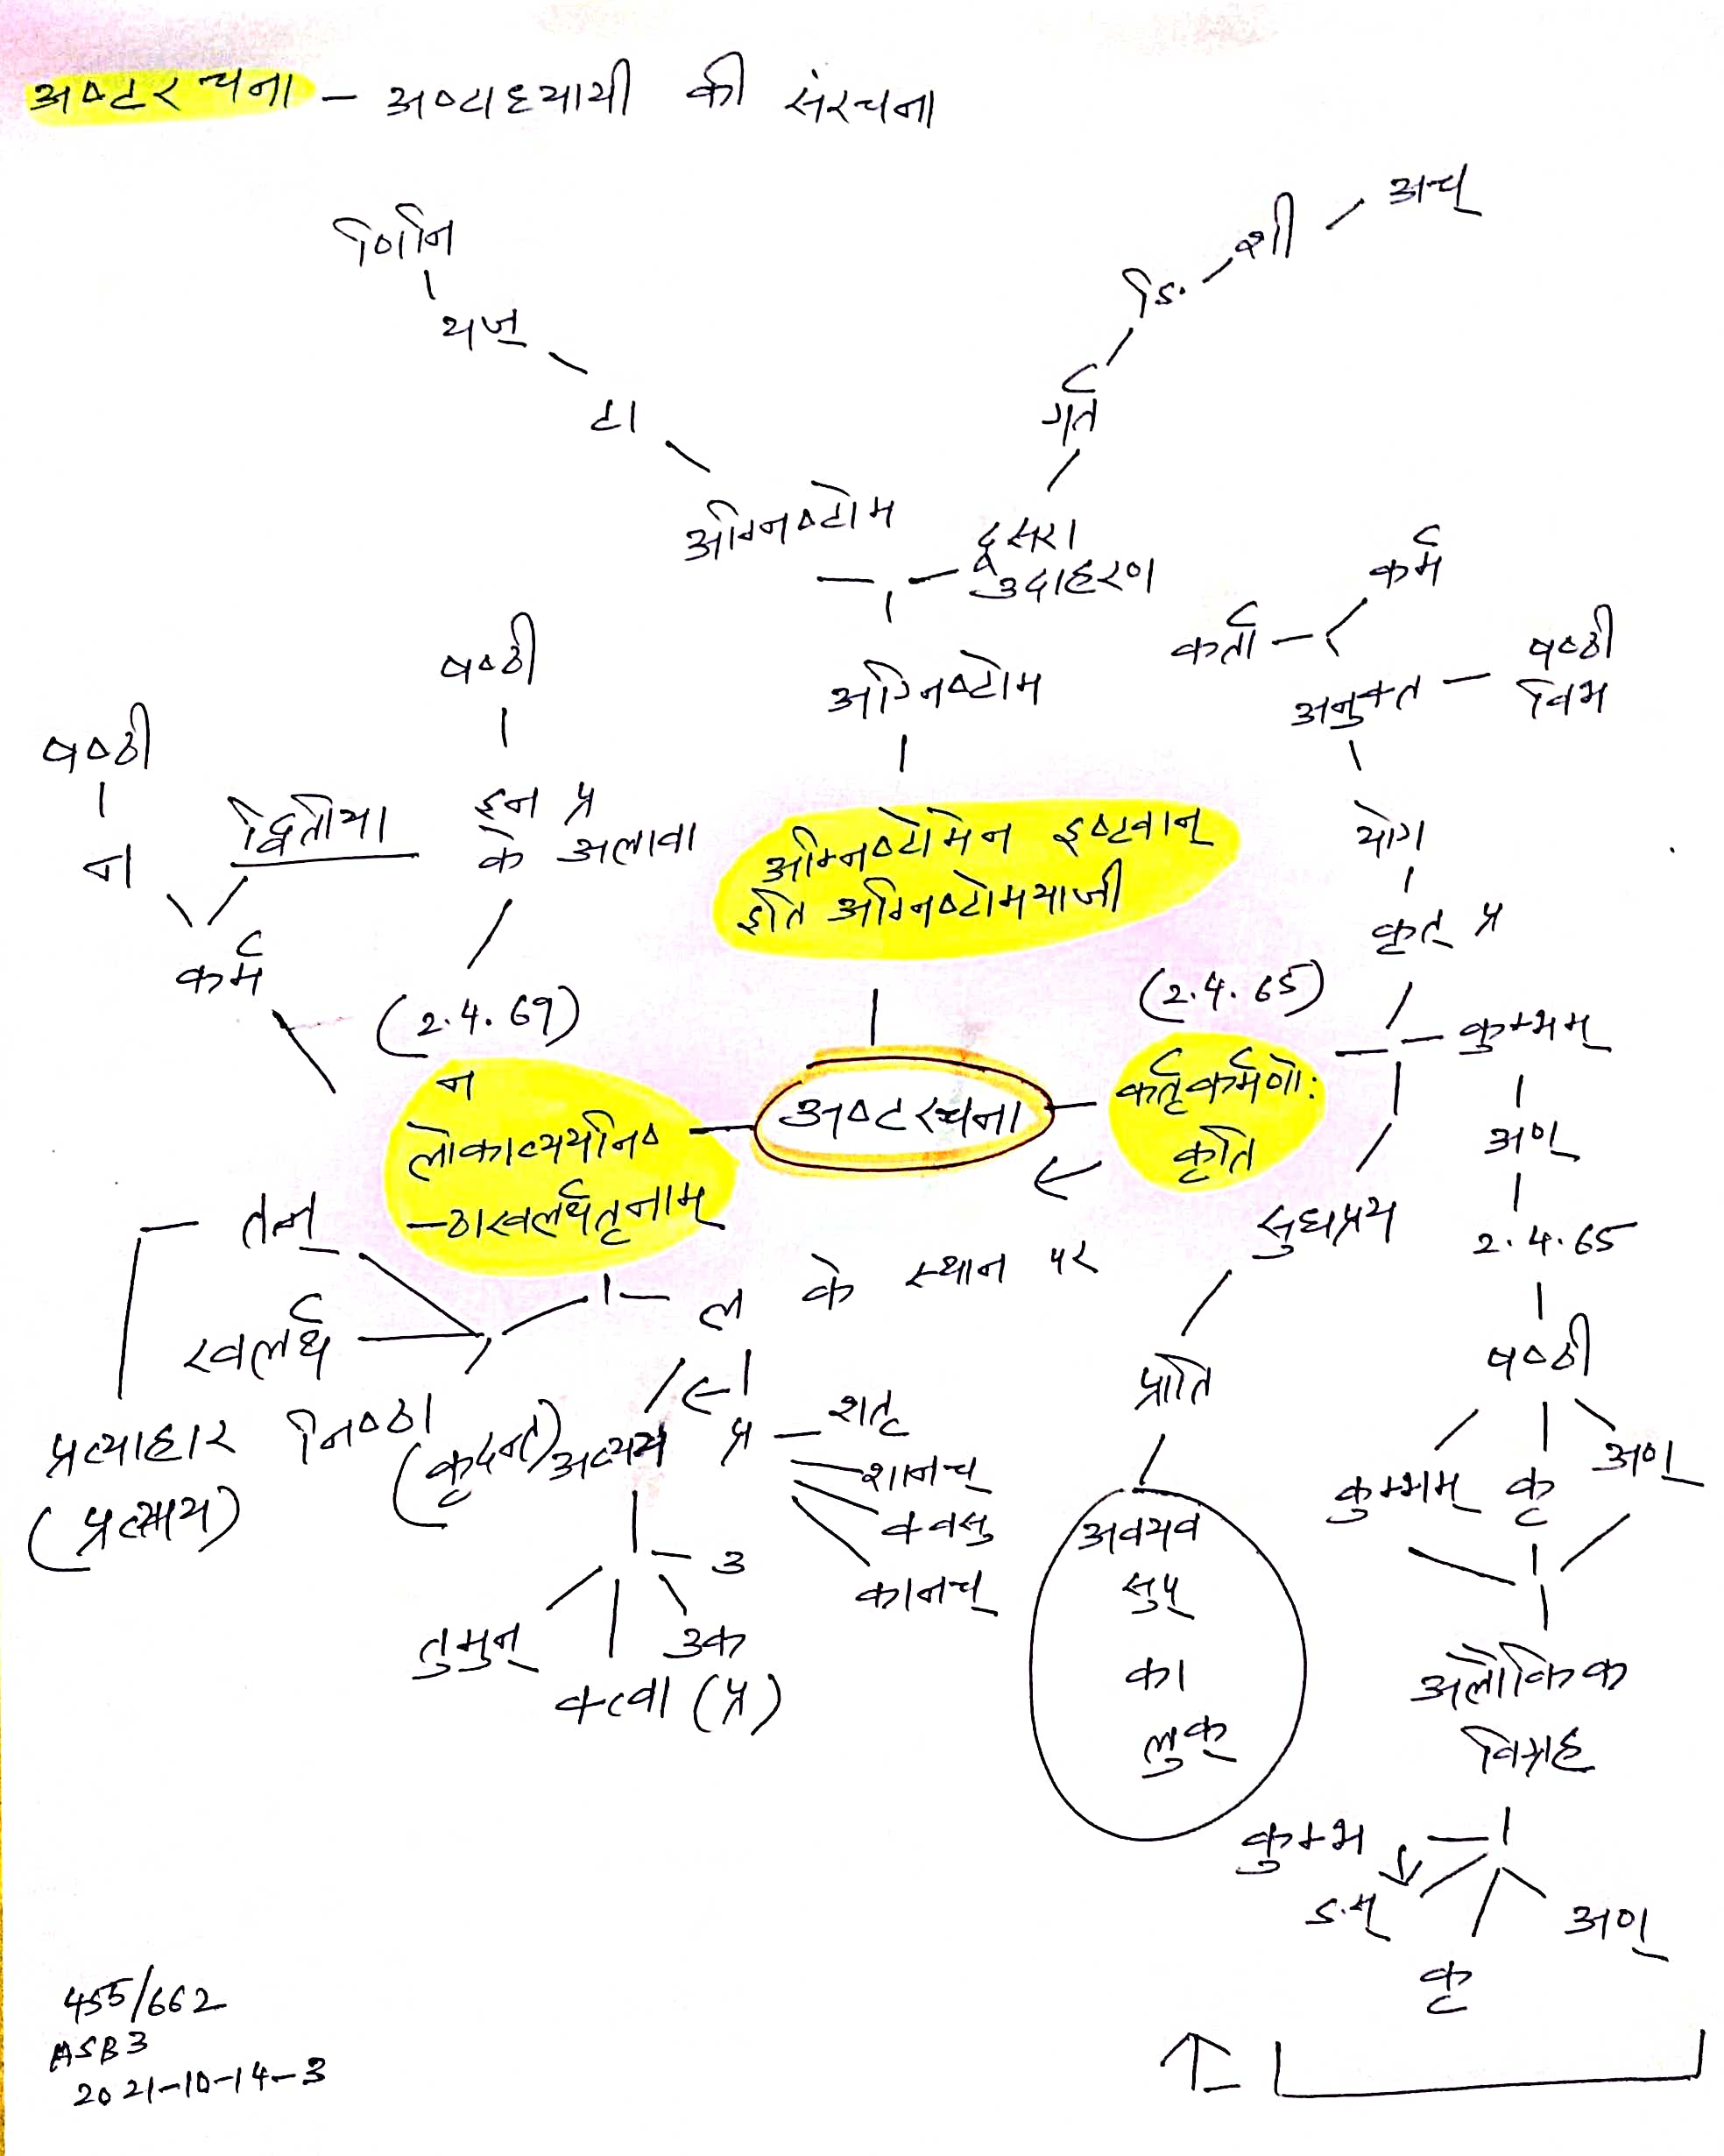 अष्टरचना – अष्टाध्यायी की संरचना
णिनि
यज्
टा
अग्निष्टोम
अच्
शी
ङि
गर्त
दूसरा
उदाहरण
अग्निष्टोम
कर्म
कर्ता
अनुक्त – षष्ठी
विभ
योग
कृत् प्र
षष्ठी
न
द्वितीया
कर्म
षष्ठी
इन प्र
के अलावा
अग्निष्टोमेन इष्टवान्
इति अग्निष्टोमयाजी
(2.4.69)
न
लोकाव्ययनिष
–ठाखलर्थतृनाम्
अष्टरचना
(2.4.65)
कर्तृकर्मणोः
कृति
कुम्भम्
अण्
2.4.65
षष्ठी
कुम्भम् कृ अण्
अलौकिक
विग्रह
कुम्भ
ङस्
कृ
अण्
सुधप्रय
प्राति
अवयव
सुप्
का
लुक्
तृन्
खलर्थ
निष्ठा
प्रत्याहार
(प्रत्यय)
ल के स्थान पर
(कृदन्त) अव्यय
प्र – शतृ
शानच्
क्वसु
कानच्
उ
उक
तुमुन्
क्त्वा (प्र)
455/662
ASB3
2021-10-14-3